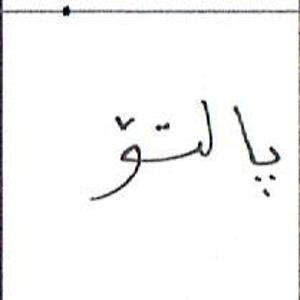 پالتۆ